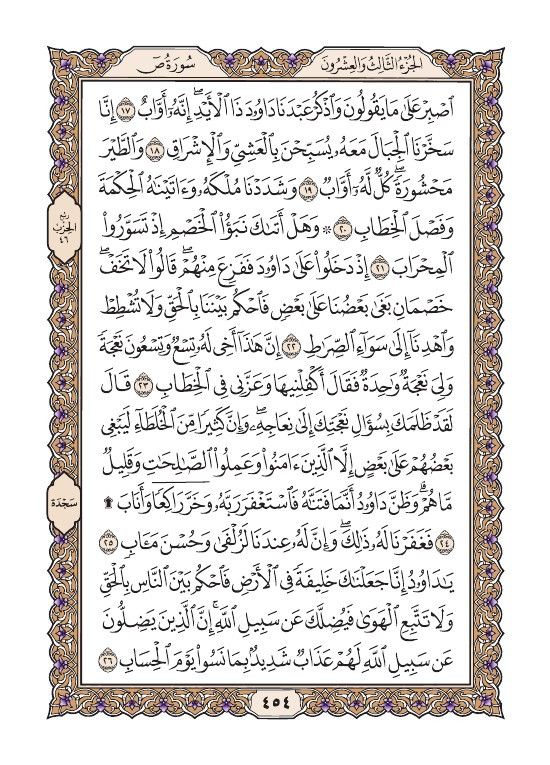 الجُزْءُ الثَّالِثُ وَالْعِشْرُونَ
سُورَةُ صٓ
ٱصْبِرْ عَلَىٰ مَا يَقُولُونَ وَٱذْكُرْ عَبْدَنَا دَاوُۥدَ ذَا ٱلْأَيْدِۖ إِنَّهُۥٓ أَوَّابٌ ١٧ إِنَّا
سَخَّرْنَا ٱلْجِبَالَ مَعَهُۥ يُسَبِّحْنَ بِٱلْعَشِىِّ وَٱلْإِشْرَاقِ ١٨ وَٱلطَّيْرَ
مَحْشُورَةًۖ كُلٌّ لَّهُۥٓ أَوَّابٌ ١٩ وَشَدَدْنَا مُلْكَهُۥ وَءَاتَيْنَٰهُ ٱلْحِكْمَةَ
وَفَصْلَ ٱلْخِطَابِ ٢٠ ۞ وَهَلْ أَتَىٰكَ نَبَؤُا۟ ٱلْخَصْمِ إِذْ تَسَوَّرُوا۟
ٱلْمِحْرَابَ ٢١ إِذْ دَخَلُوا۟ عَلَىٰ دَاوُۥدَ فَفَزِعَ مِنْهُمْۖ قَالُوا۟ لَا تَخَفْۖ
خَصْمَانِ بَغَىٰ بَعْضُنَا عَلَىٰ بَعْضٍ فَٱحْكُم بَيْنَنَا بِٱلْحَقِّ وَلَا تُشْطِطْ
وَٱهْدِنَآ إِلَىٰ سَوَآءِ ٱلصِّرَٰطِ ٢٢ إِنَّ هَٰذَآ أَخِى لَهُۥ تِسْعٌ وَتِسْعُونَ نَعْجَةً
وَلِىَ نَعْجَةٌ وَٰحِدَةٌ فَقَالَ أَكْفِلْنِيهَا وَعَزَّنِى فِى ٱلْخِطَابِ ٢٣ قَالَ
لَقَدْ ظَلَمَكَ بِسُؤَالِ نَعْجَتِكَ إِلَىٰ نِعَاجِهِۦۖ وَإِنَّ كَثِيرًا مِّنَ ٱلْخُلَطَآءِ لَيَبْغِى
بَعْضُهُمْ عَلَىٰ بَعْضٍ إِلَّا ٱلَّذِينَ ءَامَنُوا۟ وَعَمِلُوا۟ ٱلصَّٰلِحَٰتِ وَقَلِيلٌ
مَّا هُمْۗ وَظَنَّ دَاوُۥدُ أَنَّمَا فَتَنَّٰهُ فَٱسْتَغْفَرَ رَبَّهُۥ وَخَرَّ رَاكِعًا وَأَنَابَ ۩
٢٤ فَغَفَرْنَا لَهُۥ ذَٰلِكَۖ وَإِنَّ لَهُۥ عِندَنَا لَزُلْفَىٰ وَحُسْنَ مَـَٔابٍ ٢٥
يَٰدَاوُۥدُ إِنَّا جَعَلْنَٰكَ خَلِيفَةً فِى ٱلْأَرْضِ فَٱحْكُم بَيْنَ ٱلنَّاسِ بِٱلْحَقِّ
وَلَا تَتَّبِعِ ٱلْهَوَىٰ فَيُضِلَّكَ عَن سَبِيلِ ٱللَّهِۚ إِنَّ ٱلَّذِينَ يَضِلُّونَ
عَن سَبِيلِ ٱللَّهِ لَهُمْ عَذَابٌ شَدِيدٌۢ بِمَا نَسُوا۟ يَوْمَ ٱلْحِسَابِ ٢٦
ربع
الحزب
٤٦
سَجْدَة
٤٥٤